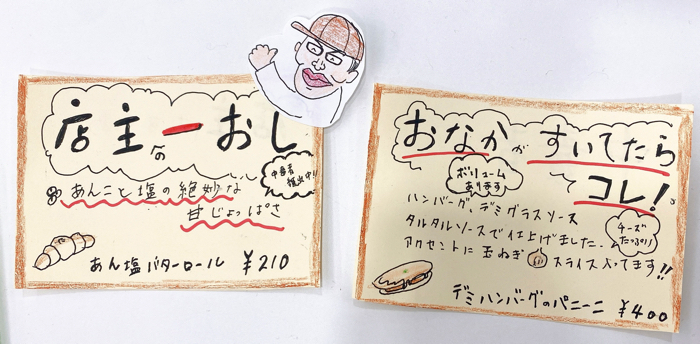 店主の一おし
あんこと塩の絶妙な
甘じょっぱさ
あん塩バターロール ¥210
おなかがすいてたら
コレ!
ボリューム
あります
ハンバーグ、デミグラスソース
タルタルソースで仕上げました。
チーズ
たっぷり
アクセントに玉ねぎスライス入ってます!!
デミハンバーグのパニーニ ¥400